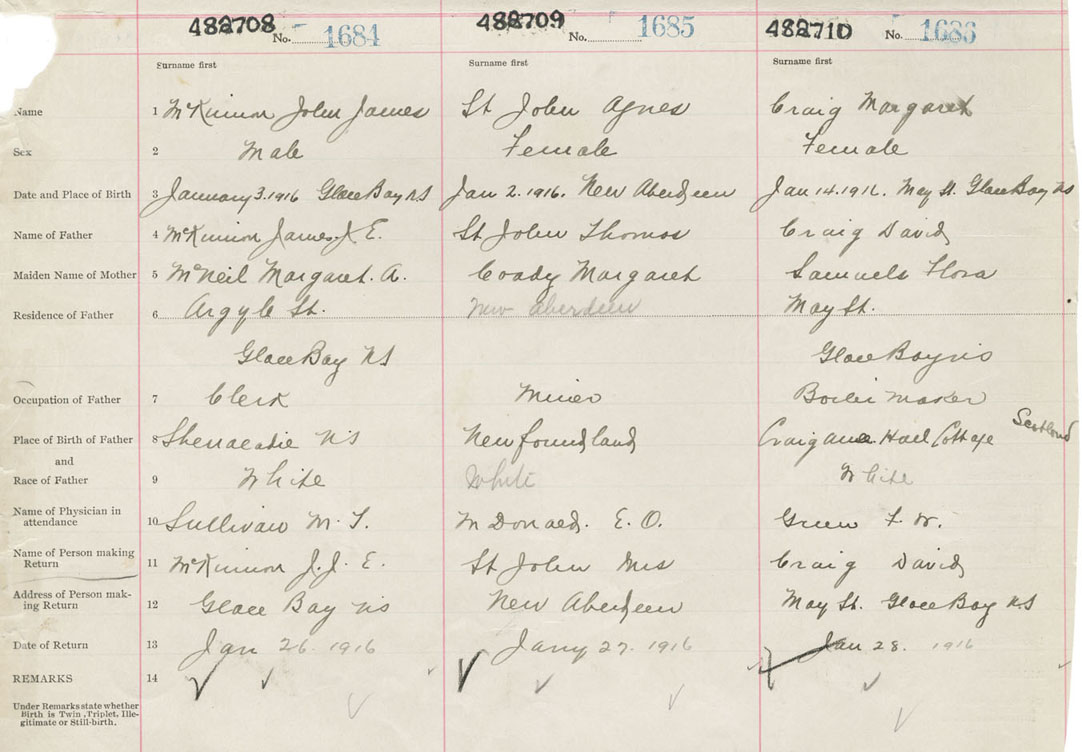 482708 No. 1684 482709 No. 1685 482710 No. 1686
Surname first Surname first Surname first
Name 1 McKinnon John James St John Agnes Craig Margaret
Sex 2 Male Female Female
Date and Place of Birth 3 January 3. 1916 Glace Bay NS Jan 2. 1916. New Aberdeen Jan 14. 1916. May St. Glace Bay NS
Name of Father 4 McKinnon James J. E. St John Thomas Craig David
Maiden Name of Mother 5 McNeil Margaret. A. Coady Margaret Samuels Flora
Residence of Father 6 Argyle St. New Aberdeen May St.
Glace Bay NS Glace Bay NS
Occupation of Father 7 Clerk Miner Boiler maker
Place of Birth of Father 8 Shenacadie NS Newfoundland Cottage Scotland
and
Race of Father 9 White White White
Name of Physician in
attendance 10 Sullivan M. T. McDonald. E. O. Green F. W.
Name of Person making
Return 11 McKinnon J. J. E. St John Mrs Craig David
Address of Person mak-
ing Return 12 Glace Bay NS New Aberdeen May St. Glace Bay NS
Date of Return 13 Jan 26 1916 Jany 27. 1916 Jan 28. 1916
REMARKS 14
Under Remarks state whether
Birth is Twin, Triplet, Ille-
gitimate or Still-birth.